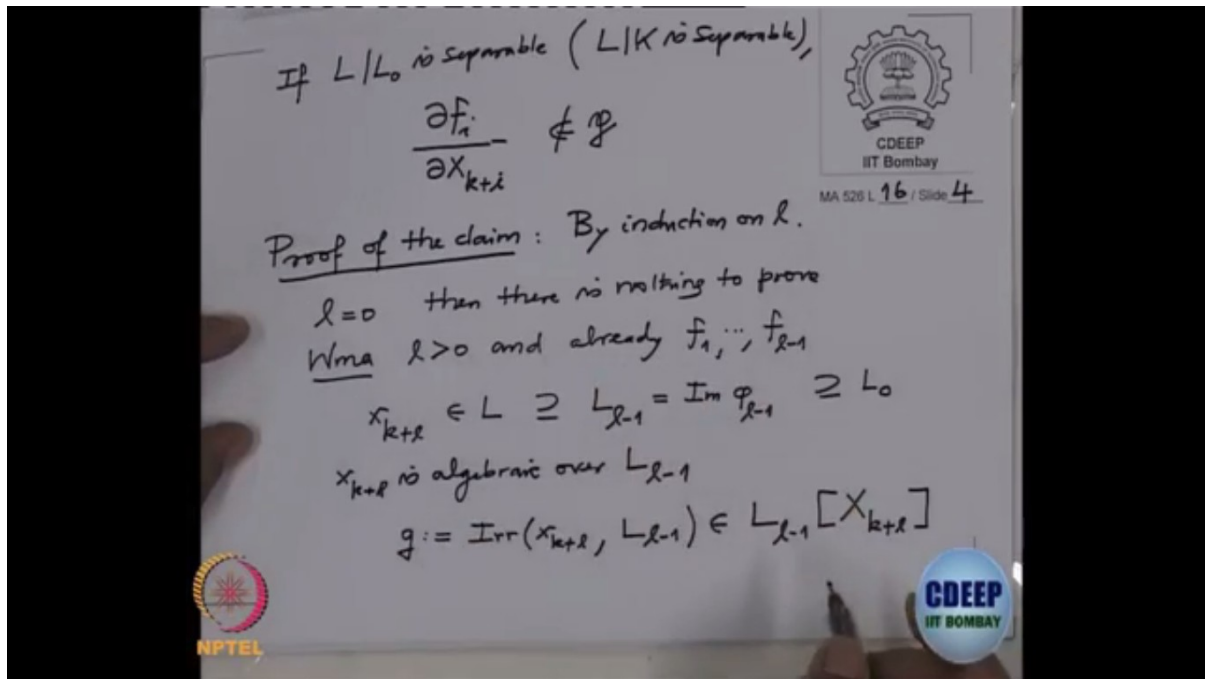 If L/L₀ is separable (L|K is separable),
∂f_i / ∂X_{k+i} ∉ 𝔭
CDEEP
IIT Bombay
MA 526 L 16 / Slide 4
Proof of the claim : By induction on l.
l=0 then there is nothing to prove
Wma l>0 and already f₁, ..., f_{l-1}
x_{k+l} ∈ L ⊇ L_{l-1} = Im φ_{l-1} ⊇ L₀
x_{k+l} is algebraic over L_{l-1}
g := Irr(x_{k+l}, L_{l-1}) ∈ L_{l-1}[X_{k+l}]
NPTEL
CDEEP
IIT BOMBAY